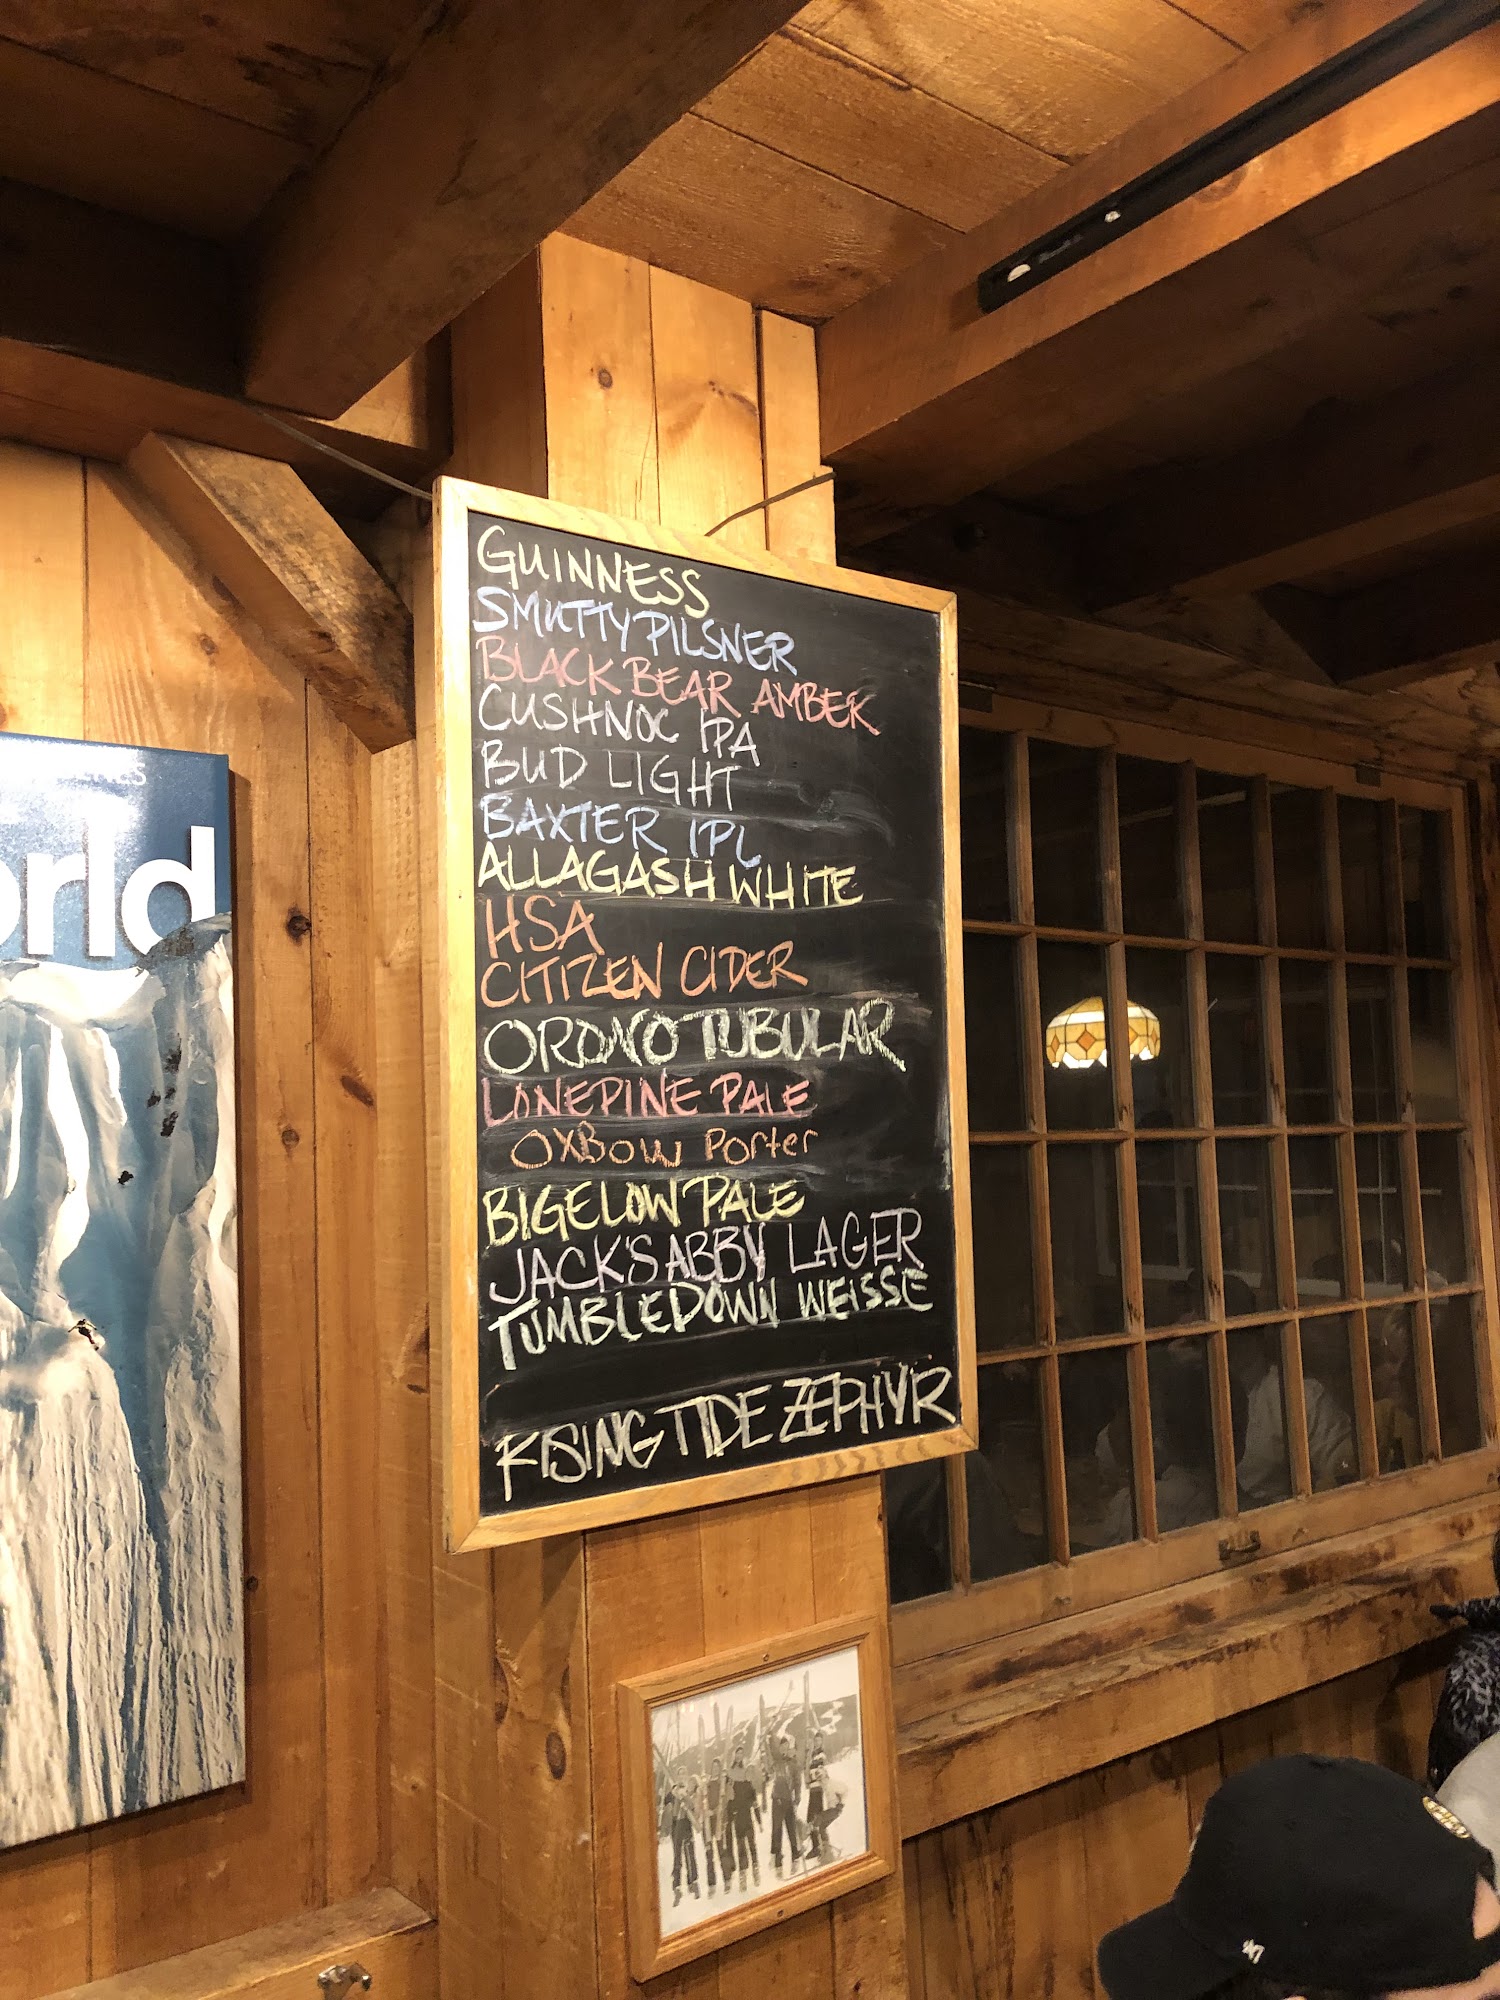 orld
GUINNESS
SMUTTY PILSNER
BLACK BEAR AMBER
CUSHNOC IPA
BUD LIGHT
BAXTER IPL
ALLAGASH WHITE
HSA
CITIZEN CIDER
ORONO TUBULAR
LONEPINE PALE
OXBOW Porter
BIGELOW PALE
JACK'S ABBY LAGER
TUMBLEDOWN WEISSE
RISING TIDE ZEPHYR
47